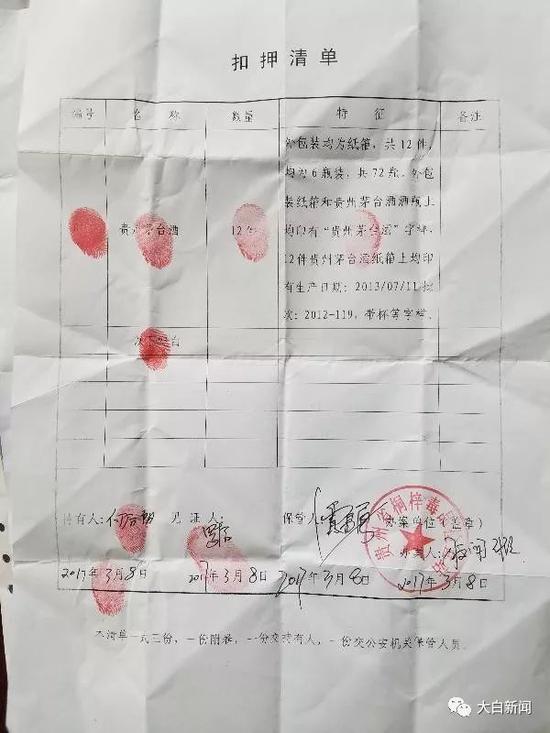 扣押清单
编号 名称 数量 特征 备注
外包装均为纸箱，共12件，
均为6瓶装，共72瓶，外包
装纸箱和贵州茅台酒酒瓶上
贵州茅台酒 12件 均印有“贵州茅台酒”字样，
12件贵州茅台酒纸箱上均印
有生产日期：2013/07/11 批
次：2012-119，带杯等字样。
持有人： 见证人： 保管人： 办案单位（盖章）
办案人：
2017年3月8日 2017年3月8日 2017年3月8日 2017年3月8日
本清单一式三份，一份附卷，一份交持有人，一份交公安机关保管人员。
大白新闻